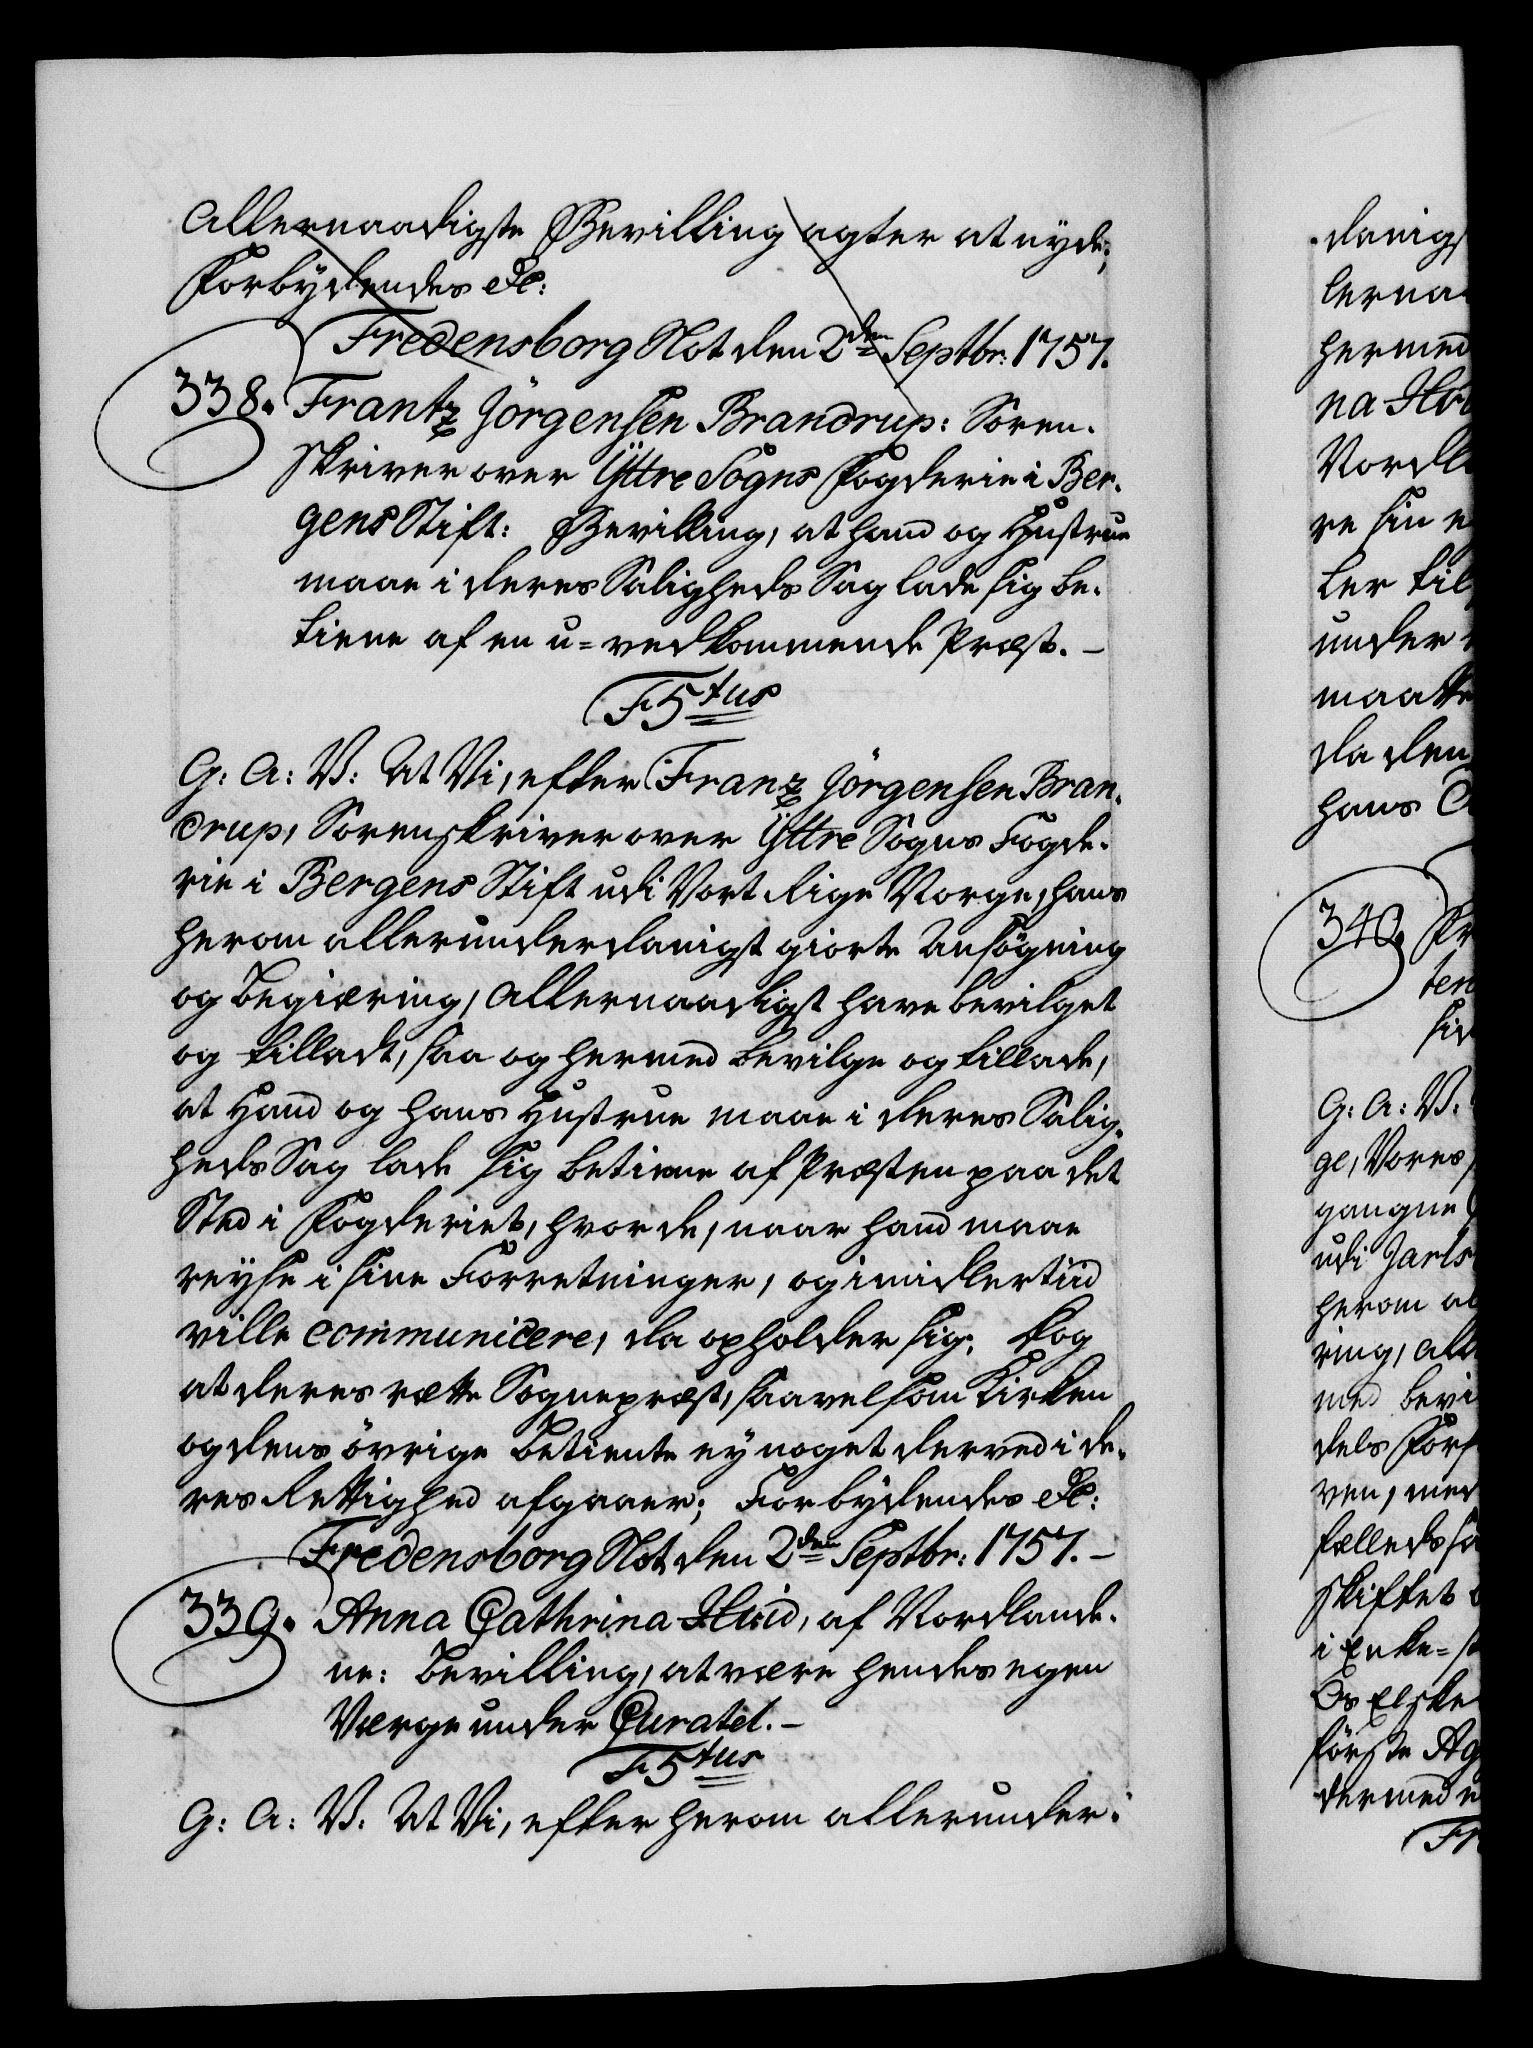 Allernaadigste Bevilling agter at nyde;
Forbydendes &c:
Fredensborg Slot den 2den Septbr: 1757.
338. Frantz Jörgensen Brandrup: Soren-
skriver over Yttre Sogns Fogderie i Ber-
gens Stift: Bevilling, at hand og Hustrue
maae i deres Saligheds Sag lade sig be-
tiene af en u=vedkommende Præst. —
F5tus
G: A: V: At Vi, efter Franz Jörgensen Bran-
drup, Sorenskriver over Yttre Sogns Fogde-
rie i Bergens Stift udi Vort Rige Norge, hans
herom allerunderdanigst giorte Ansøgning
og Begiæring, Allernaadigst have bevilget
og tilladt, saa og hermed bevilge og tillade,
at Hand og hans Hustrue maae i deres Salig-
heds Sag lade sig betiene af Præsten paa det
Sted i Fogderiet, hvor de, naar hand maae
reyse i sine Forretninger, og imidlertiid
ville communicere, da opholder sig; Dog
at deres rætte Sognepræst, saavelsom Kirken
og dens övrige Betiente ey noget derved i de-
res Rettighed afgaaer; Forbydendes &c:
Fredensborg Slot, den 2den Septbr: 1757. —
339. Anna Cathrina Huid, af Nordlande-
ne: Bevilling, at være hendes egen
Værge under Curatel. —
F5tus
G: A: V: At Vi, efter herom allerunder-
danigs
lerna
hermed
na
Nordl
re sin e
ter til
under
maatte
da den
hans C
340. Fr
ten
sid
G: A: V:
ge, Vores
gangne
udi Jarls
herom al
ring, All
med bevi
dels For
ven, med
fælleds sa
skiftet
i Enke=s
Os Elske
förste Ag
dermed e
Fr